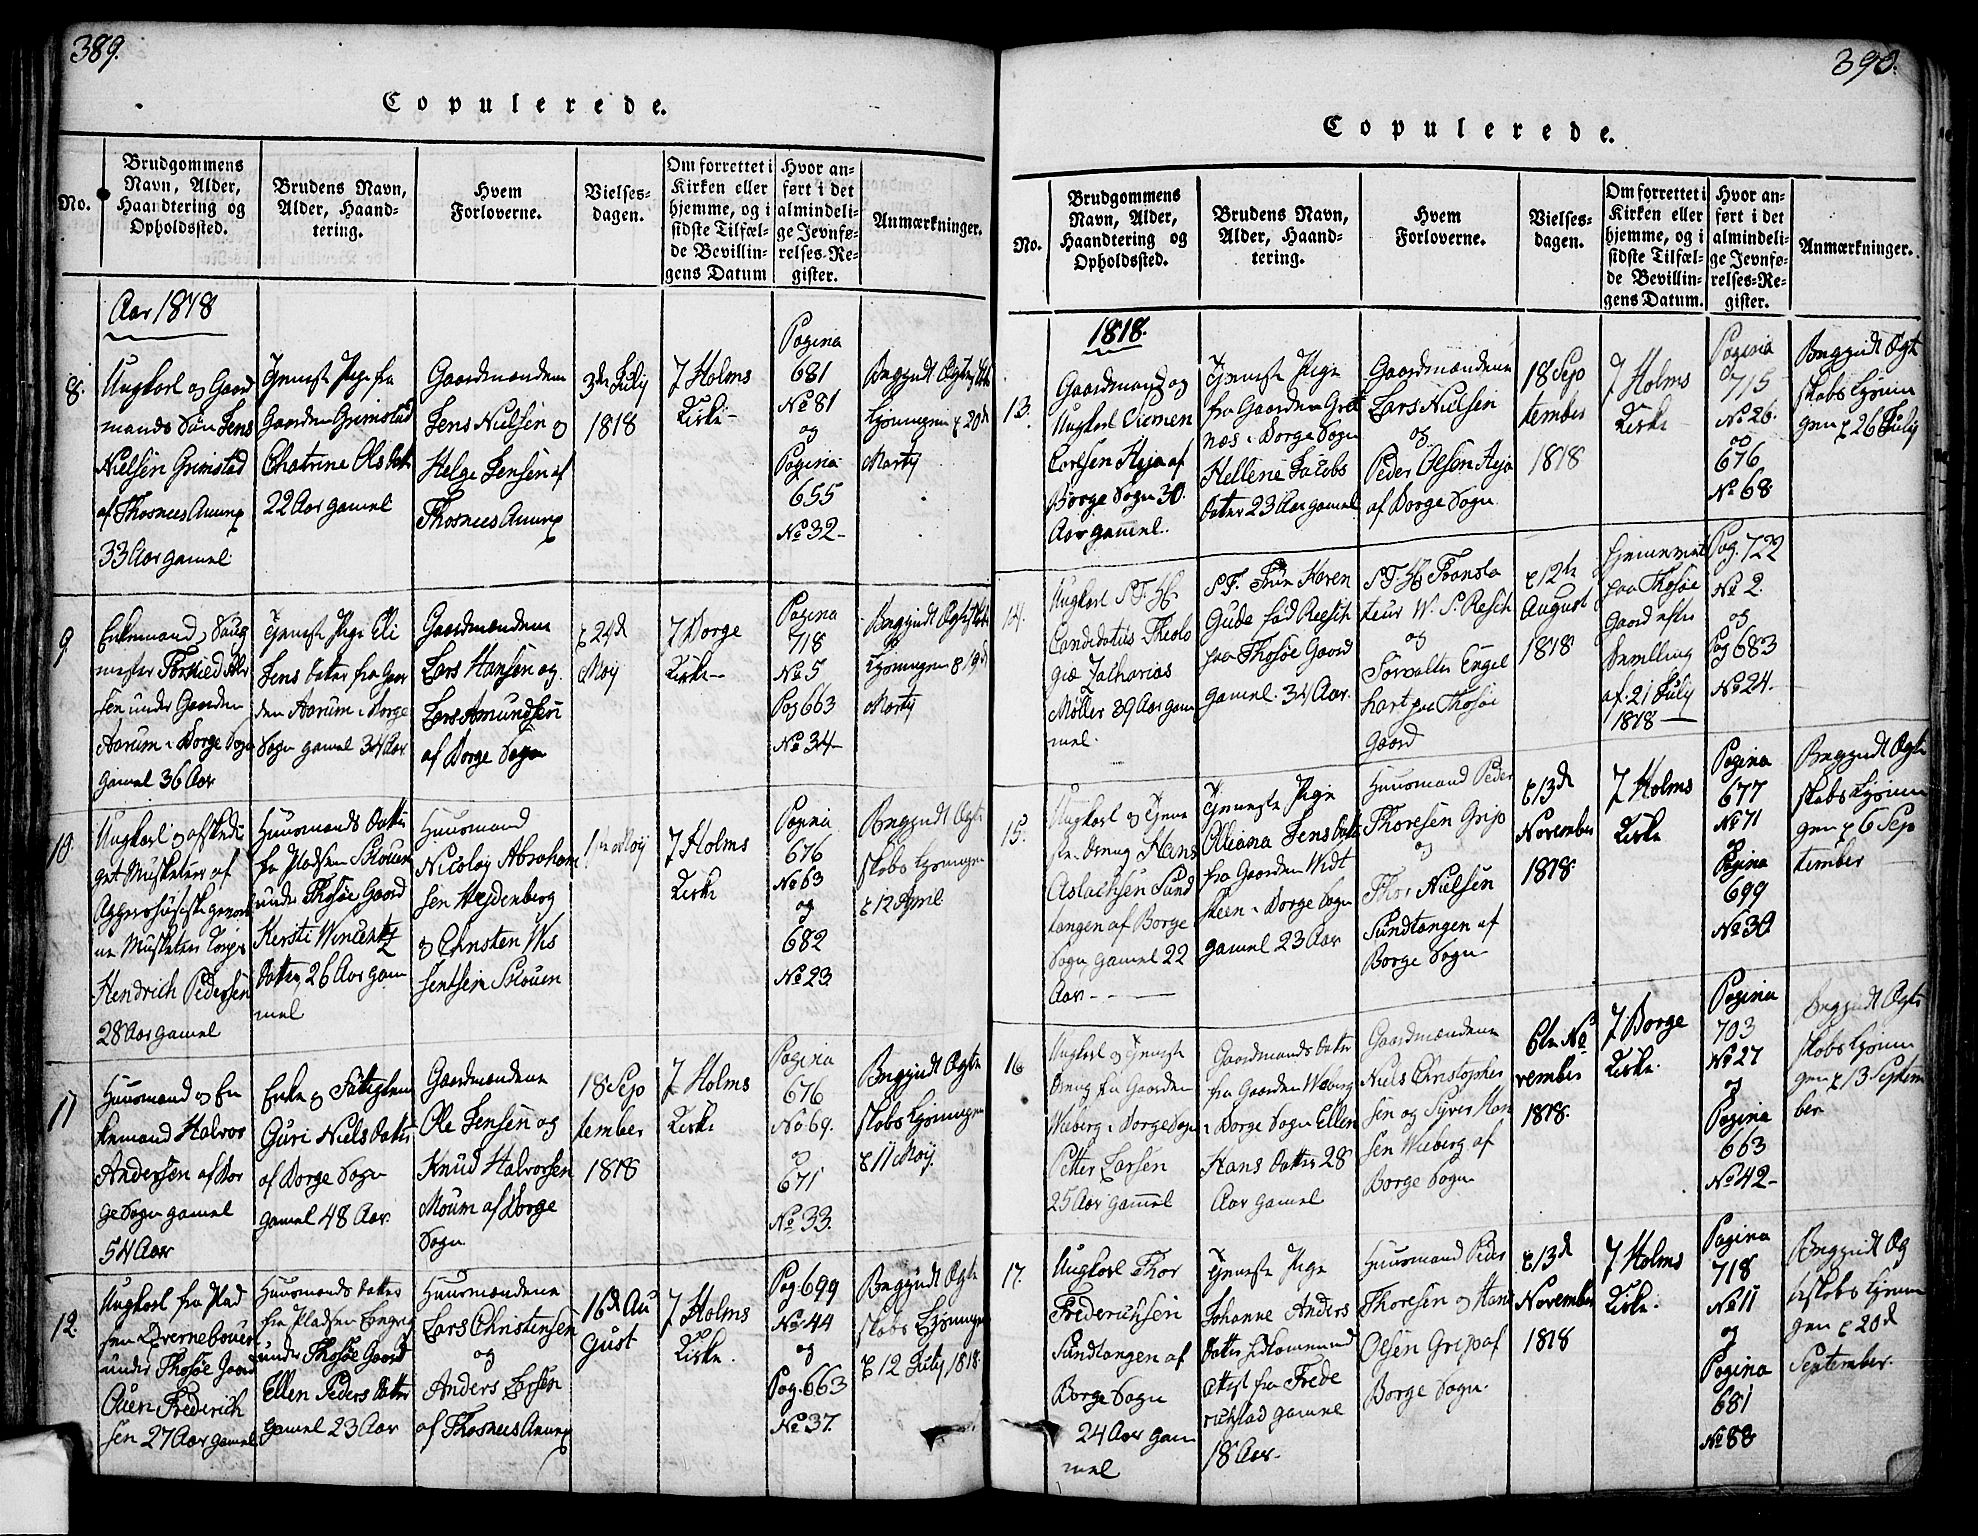 389.
Copulerede.
No.
Brudgommens
Navn, Alder,
Haandtering og
Opholdssted.
Brudens Navn,
Alder, Haand-
tering.
Hvem
Forloverne.
Vielses-
dagen.
Om forrettet i
Kirken eller
hjemme, og i
sidste Tilfæl-
de Bevillin-
gens Datum
Hvor an-
ført i det
almindeli-
ge Jevnfø-
relses-Re-
gister.
Anmærkninger.
Aar 1818
8.
Ungkarl og Gaard
mands Søn Jens
Nielsen Grimstad
af Thosnees Annex
33 Aar gamel
Tjeneste Pige fra
Gaarden Grimstad
Chatrine Ols Datter
22 Aar gamel
Gaardmændene
Jens Nielsen og
Helge Jensen af
Thosnees Annex
3de July
1818
I Holms
Kirke
Pagina
681
No 81
og
Pagina
655
No 32
Begyndt Ægteskabs
Lysningen d 20de
Marty
9
Enkemand og Saug
mester Torkild
sen under Gaarden
Aarum i Borge Sogn
gamel 36 Aar
Tjeneste Pige Eli
Jens Datter fra Gaar
den Aarum i Borge
Sogn gamel 34 Aar
Gaardmændene
Lars Hansen og
Lars Amundsen
af Borge Sogn
d 24de
May
I Borge
Kirke
Pagina
718
No 5
Pag 663
No 34
Begyndt Ægteskabs
Lysningen d 19de
Marty
10
Ungkarl og afskedi
get Musketeer af
Aggershusiske
ne Musketeer Corps
Hendrich Pedersen
28 Aar gamel
Huusmands Datter
fra Pladsen Skouen
under Thosøe Gaard
Kersti Wincentz
Datter 26 Aar gam
mel
Huusmand
Nicolay Abraham
sen Heydenberg
og Christen Wis
sentsen Skouen
1ste May
I Holms
Kirke
Pagina
676
No 63
og
682
No 23
Begyndt Ægte
skabs Lysningen
d 12 April
11
Huusmand og En
kemand Halvor
Andersen af Bor
ge Sogn gamel
54 Aar
Enke og Fattiglem
Guri Niels Datter
af Borge Sogn
gamel 48 Aar.
Gaardmændene
Ole Jensen og
Knud Halvorsen
Moum af Borge
Sogn
18 Sep
tember
1818
I Holms
Kirke
Pagina
676
No 69.
og
671
No 33.
Begyndt Ægte
skabs Lysningen
d 11 May.
12.
Ungkarl fra Plad
sen Qvernebouen
under Thosøe Gaard
Ouen Frederich
sen 27 Aar gamel
Huusmands Datter
fra Pladsen
under Thosøe Gaard
Ellen Peders Datter
gamel 23 Aar
Huusmændene
Lars Christensen
og
Anders Larsen
af Thosnees Annex
16de Au
gust
I Holms
Kirke.
Pag. 699
No 44
og
Pag. 663
No 37.
Begyndt Ægte
skabs Lysningen
d 12 July 1818.
390.
Copulerede.
No.
Brudgommens
Navn, Alder,
Haandtering og
Opholdssted.
Brudens Navn,
Alder, Haand-
tering.
Hvem
Forloverne.
Vielses-
dagen.
Om forrettet i
Kirken eller
hjemme, og i
sidste Tilfæl-
de Bevillin-
gens Datum.
Hvor an-
ført i det
almindeli-
ge Jevnfø-
relses-Re-
gister.
Anmærkninger.
1818.
13.
Gaardmand og
Ungkarl Clemen
Carlsen Heja af
Borge Sogn 30.
Aar gammel.
Tjeneste Pige
fra Gaarden Græt
næs i Borge Sogn
Hellene Jacobs
Datter 23 Aar gamel
Gaardmændene
Lars Nielsen
og
Peder Olsen Heja
af Borge Sogn.
18 Sep
tember
1818
I Holms
Kirke
Pagina
715
No 26.
og
676
No 68
Begyndt Ægte
skabs Lysnin
gen d 26 July
14.
Ungkarl S. T. Hr.
Candidatus Theolo
giæ Zacharias
Møller 39 Aar gam
mel.
S. T. Frue Karen
Gude fød Resch
paa Thosøe Gaard
gamel 34 Aar.
S. T. Hr Transla
teur W. S. Resch
og
Forvalter Engel
hart paa Thosøe
Gaard
d 12te
August
1818
hjemmeviet
paa Thosøe
Gaard efter
Bevilling
af 21 July
1818
Pag. 722
No 2.
og
Pag 683
No 24.
15.
Ungkarl og Tjene
ste Dreng Hans
Aslachsen Sund
tangen af Borge
Sogn gamel 22
Aar
Tjeneste Pige
Olleana Jens Datter
fra Gaarden Widt
steen i Borge Sogn
gamel 23 Aar
Huusmand Peder
Thoresen Grip
og
Thor Nielsen
Sundtangen af
Borge Sogn
d 13de
November
1818.
I Holms
Kirke
Pagina
677
No 71
og
Pagina
699
No 30
Begyndt Ægte
skabs Lysnin
gen d 6 Sep
tember
16
Ungkarl og Tjeneste
Dreng fra Gaarden
Wieberg i Borge Sogn
Petter Larsen
25 Aar gamel
Gaardmands Datter
fra Gaarden Wieberg
i Borge Sogn Ellen
Hans Datter 28
Aar gamel
Gaardmændene
Niels Christopher
sen og Syver Han
sen Wieberg af
Borge Sogn
6te No
vember
1818.
I Borge
Kirke.
Pagina
703
No 27
og
Pagina
663
No 42
Begyndt Ægte
skabs Lysnin
gen d 13 Septem
ber
17.
Ungkarl Thor
Frederichsen
Sundtangen af
Borge Sogn
24 Aar gam
mel
Tjeneste Pige
Johanne Anders
Datter
Attest fra Frede
richstad gamel
18 Aar.
Huusmand Peder
Thoresen og Hans
Olsen Grip af
Borge Sogn.
d 13de
November
1818
I Holms
Kirke.
Pagina
718
No 11
og
Pagina
681
No 88
Begyndt Æg
teskabs Lysnin
gen d 20de
September.